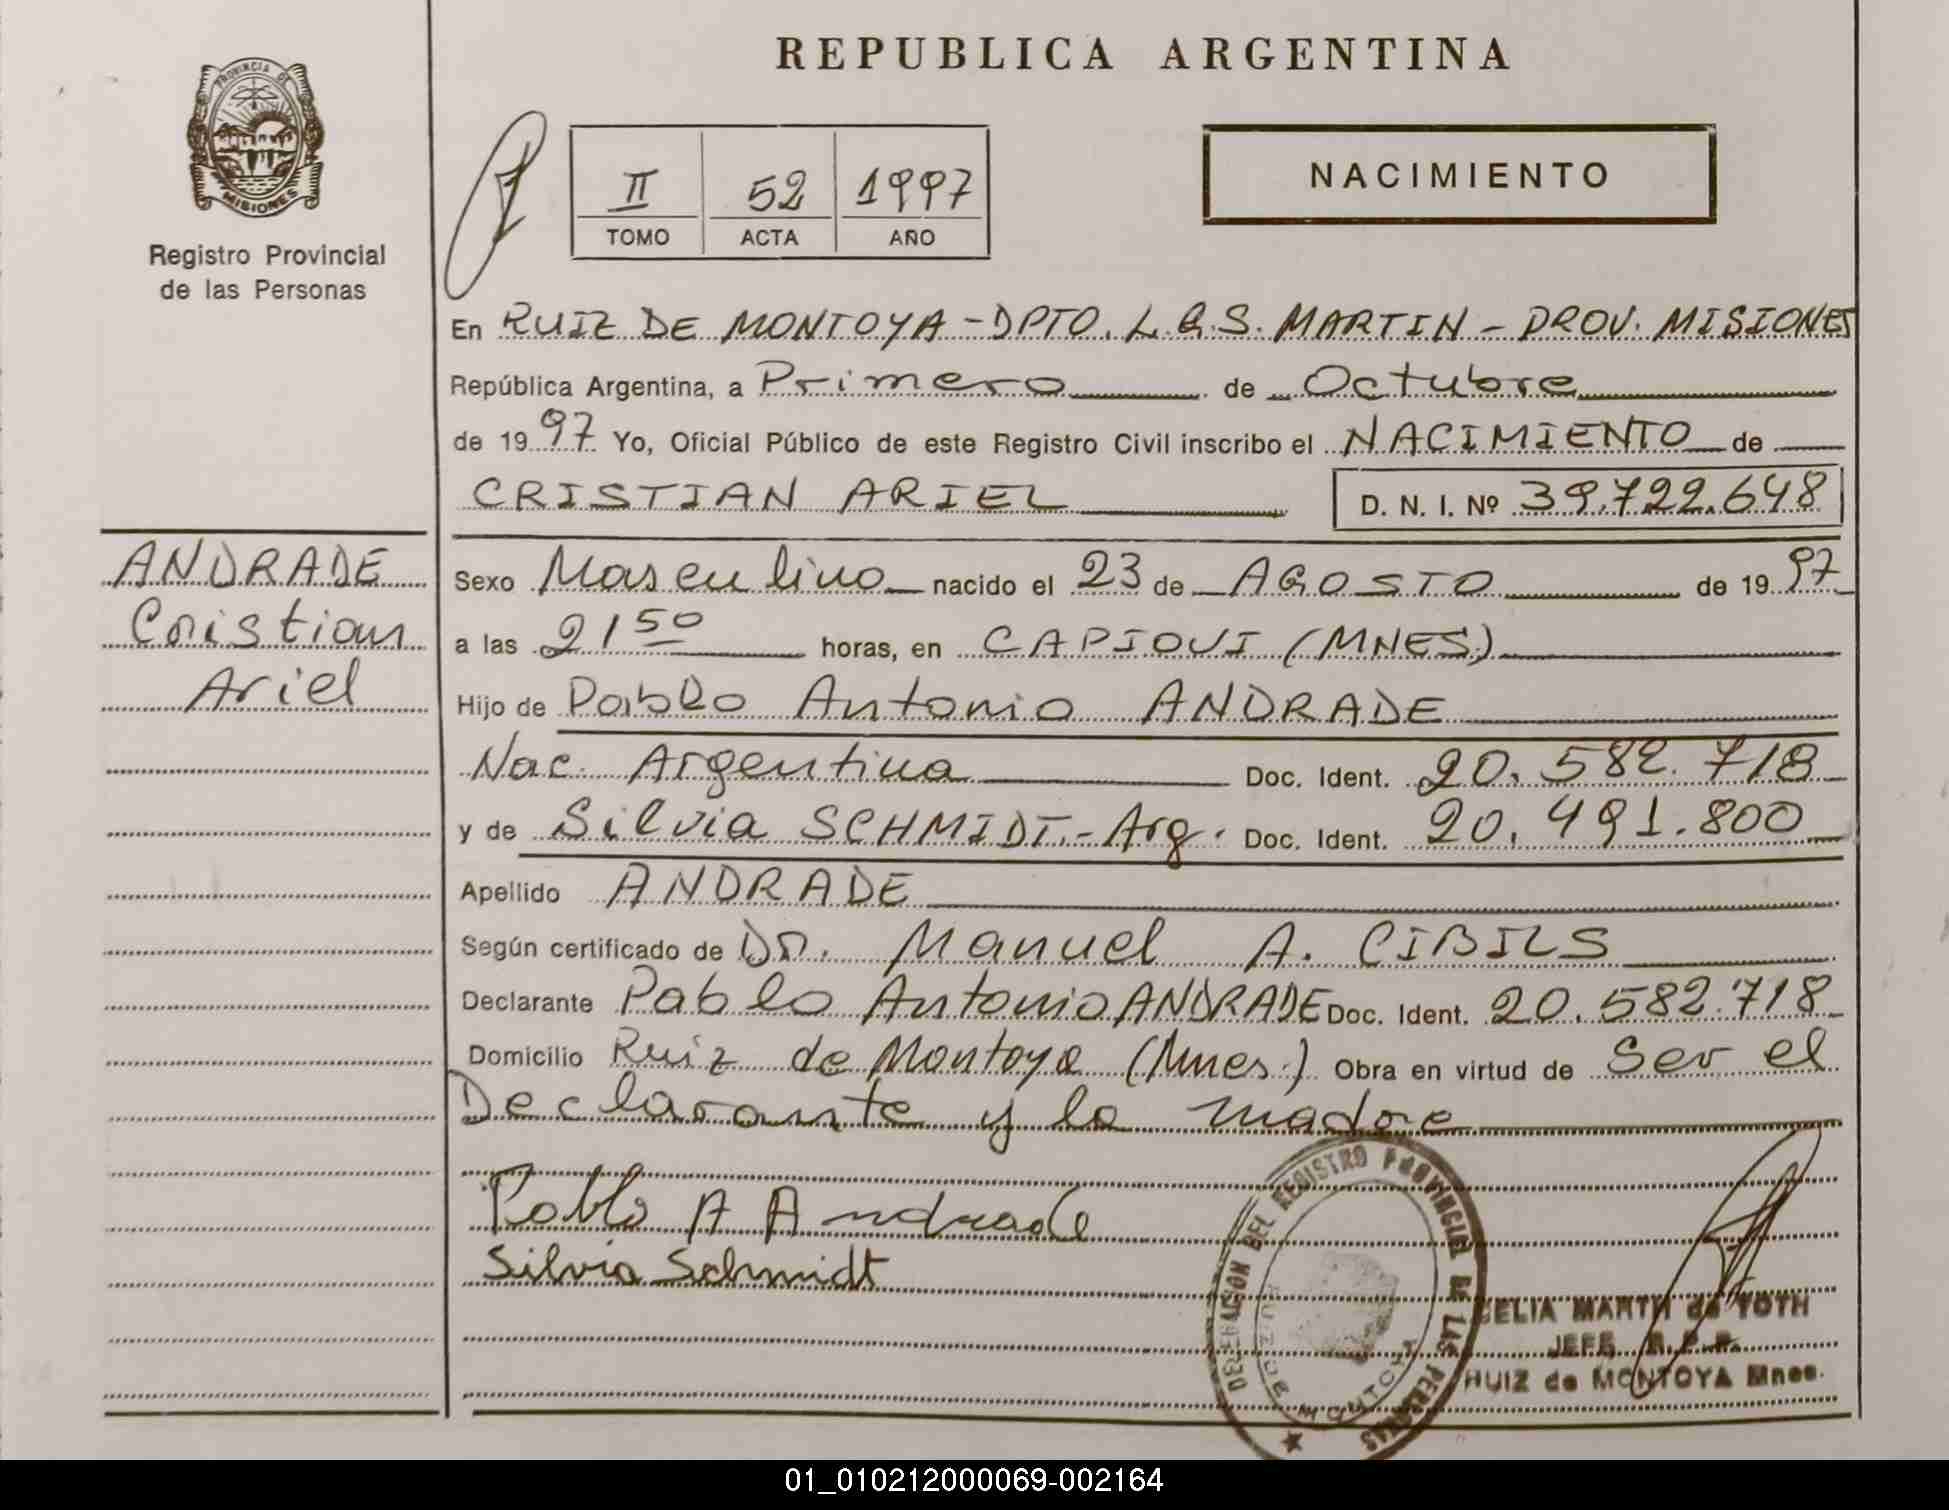 REPUBLICA ARGENTINA
PROVINCIA DE
MISIONES
Registro Provincial
de las Personas
II 52 1997
TOMO ACTA AÑO
NACIMIENTO
En RUIZ DE MONTOYA - DPTO. L.G.S. MARTIN - PROV. MISIONES
República Argentina, a Primero de Octubre
de 1997 Yo, Oficial Público de este Registro Civil inscribo el NACIMIENTO de
CRISTIAN ARIEL D. N. I. Nº 39.722.648
ANDRADE
Cristian
Ariel
Sexo Masculino nacido el 23 de AGOSTO de 1997
a las 21 50 horas, en CAPIOVI (MNES)
Hijo de Pablo Antonio ANDRADE
Nac. Argentina Doc. Ident. 20.582.718
y de Silvia SCHMIDT.- Arg. Doc. Ident. 20.491.800
Apellido ANDRADE
Según certificado de Dr. Manuel A. CIBILS
Declarante Pablo Antonio ANDRADE Doc. Ident. 20.582.718
Domicilio Ruiz de Montoya (Mnes.) Obra en virtud de Ser el
Declarante y la madre
Pablo A Andrade
Silvia Schmidt
DELEGACION DEL REGISTRO PROVINCIAL DE LAS PERSONAS
RUIZ DE MONTOYA
CELIA MARTH de TOTH
JEFE R.P.P.
RUIZ de MONTOYA Mnes.
01_010212000069-002164